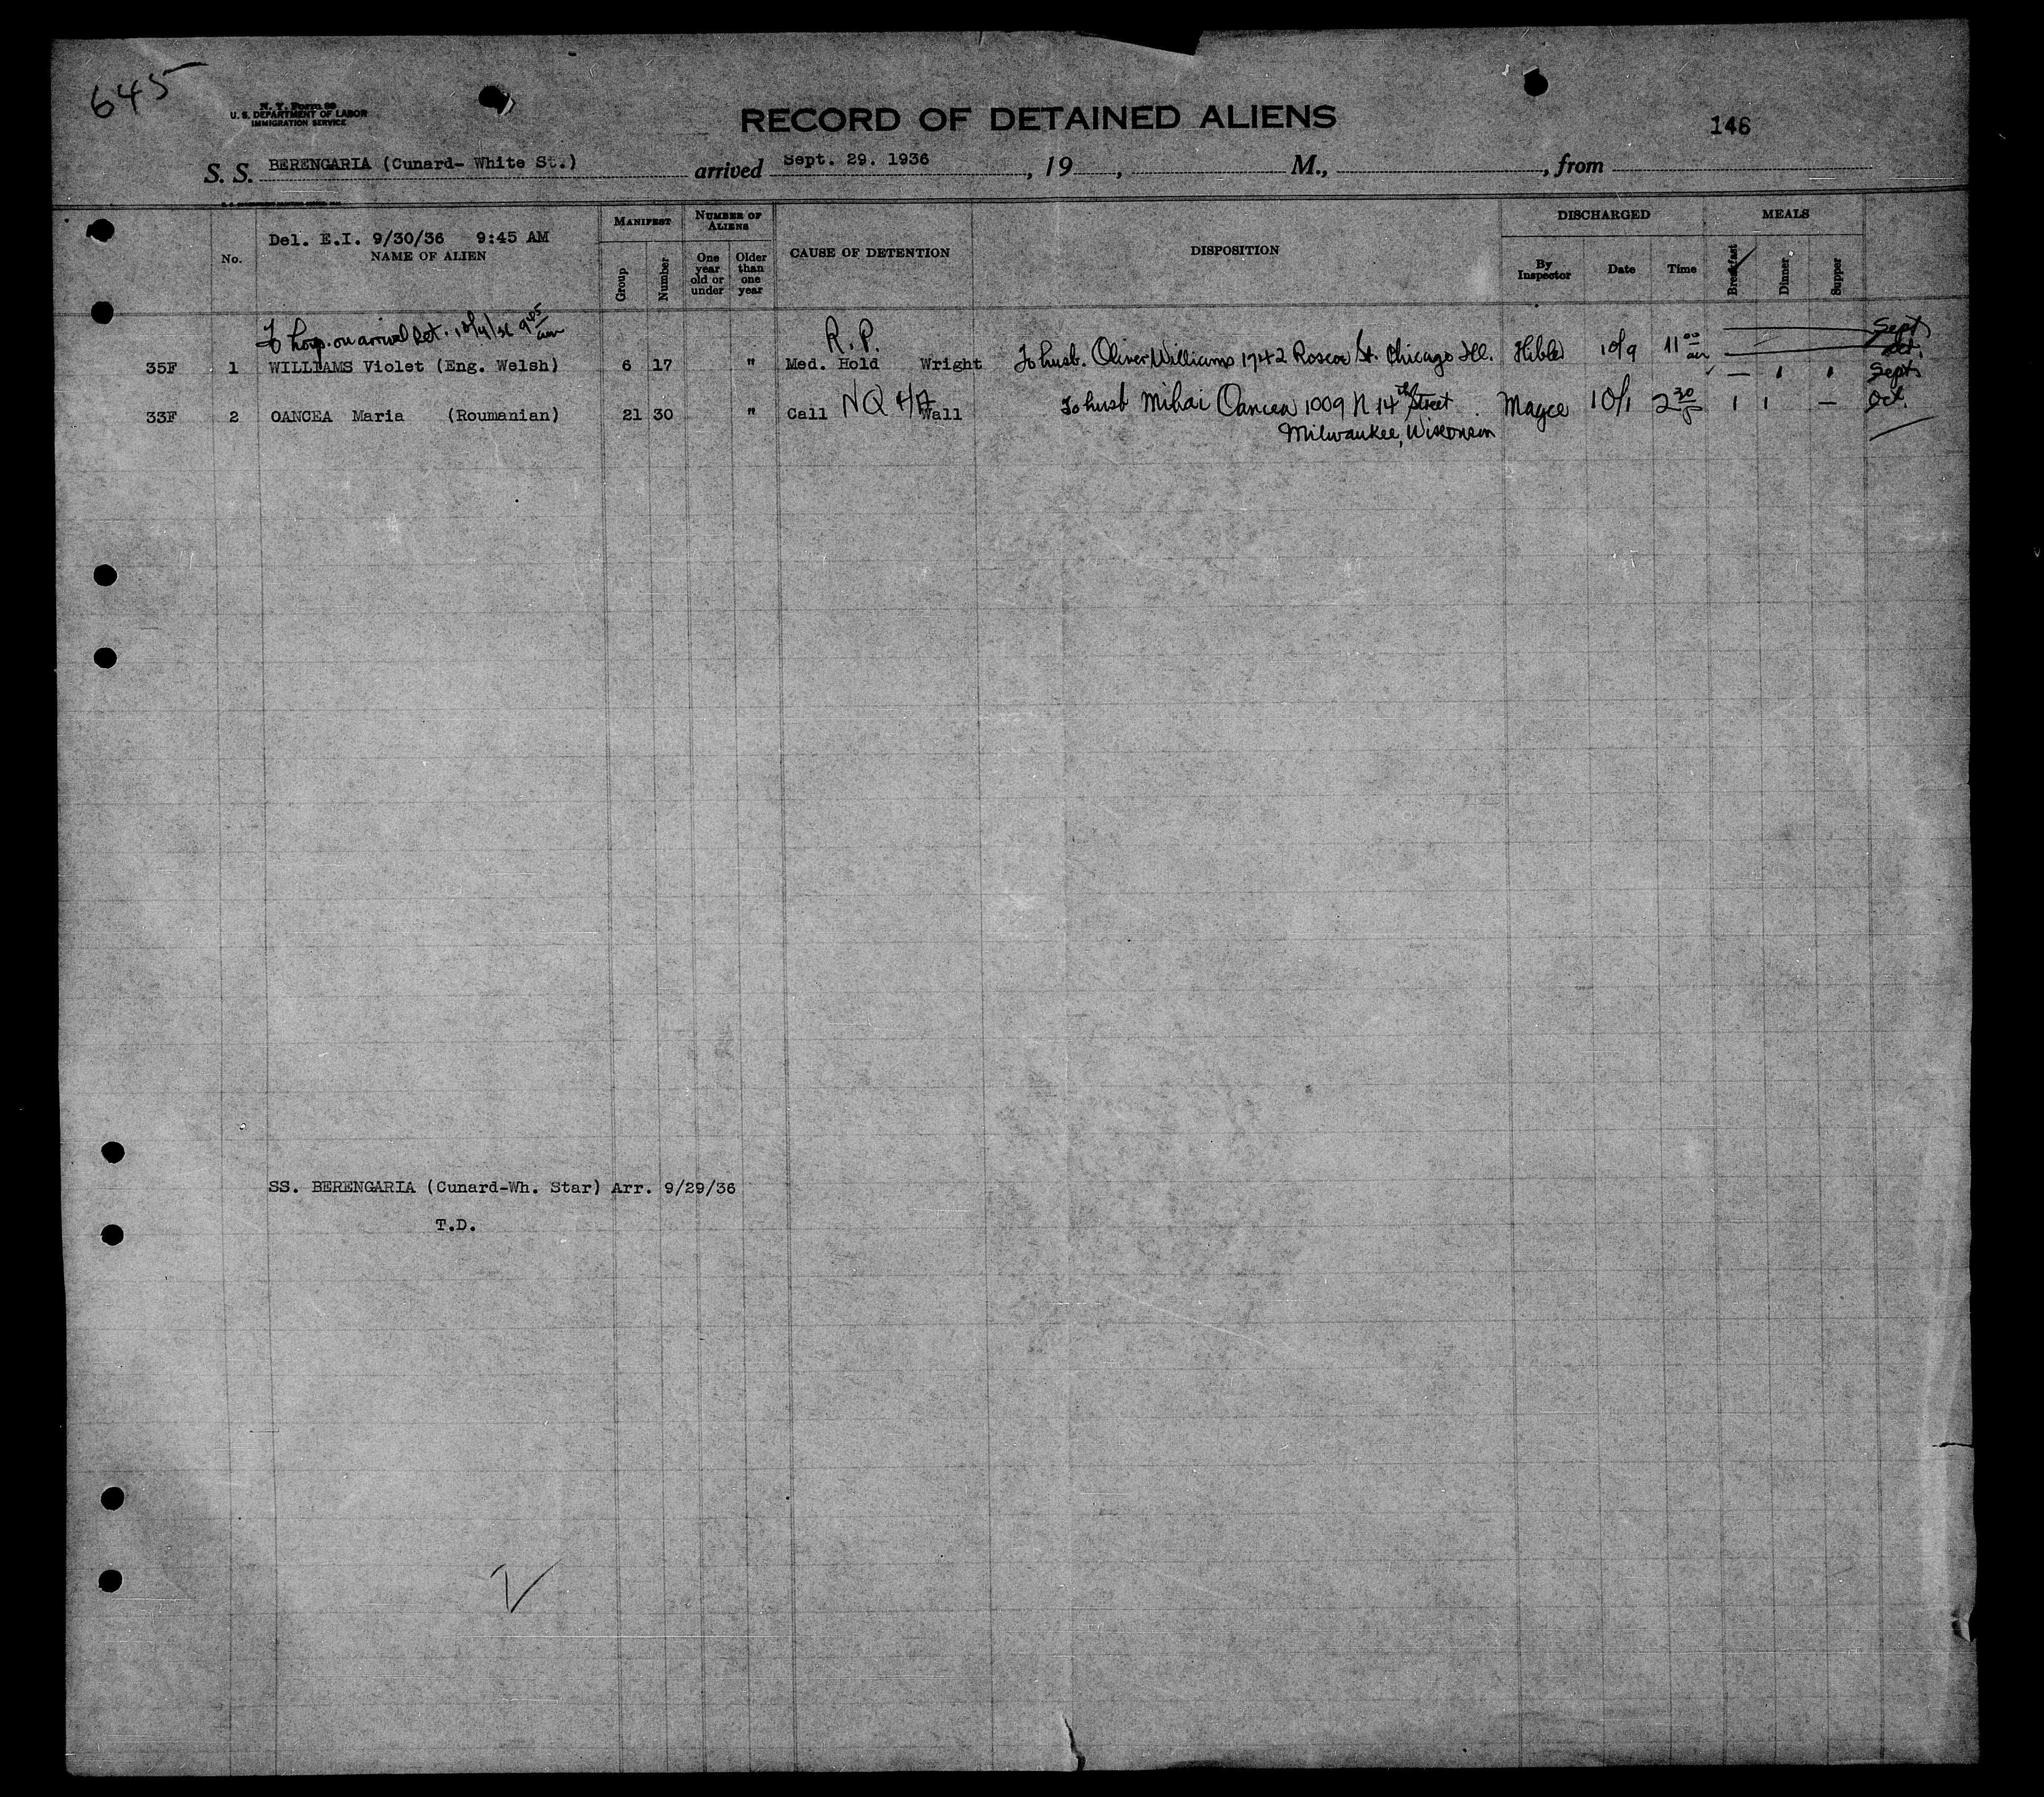 645
N. Y. Form 99
U. S. DEPARTMENT OF LABOR
IMMIGRATION SERVICE
RECORD OF DETAINED ALIENS
146
S. S. BERENGARIA (Cunard- White St.) arrived Sept. 29. 1936, 19 , M., , from
Del. E.I. 9/30/36 9:45 AM
No. NAME OF ALIEN
MANIFEST
Group Number
NUMBER OF ALIENS
One year old or under
Older than one year
CAUSE OF DETENTION
DISPOSITION
DISCHARGED
By Inspector Date Time
MEALS
Breakfast Dinner Supper
To hosp. on arrival Ret. 10/4/36 9 45 am
R.P.
Sept
35F 1 WILLIAMS Violet (Eng. Welsh) 6 17 " Med. Hold Wright To husb. Oliver Williams 1742 Roscoe St. Chicago Ill. 10/9 11 00 am Oct.
— 1 1 Sept
33F 2 OANCEA Maria (Roumanian) 21 30 " Call NQ HA Wall To husb Mihai Oancea 1009 N 14th Street Magee 10/1 2 30 P 1 1 — Oct.
Milwaukee, Wisconsin
SS. BERENGARIA (Cunard-Wh. Star) Arr. 9/29/36
T.D.
2